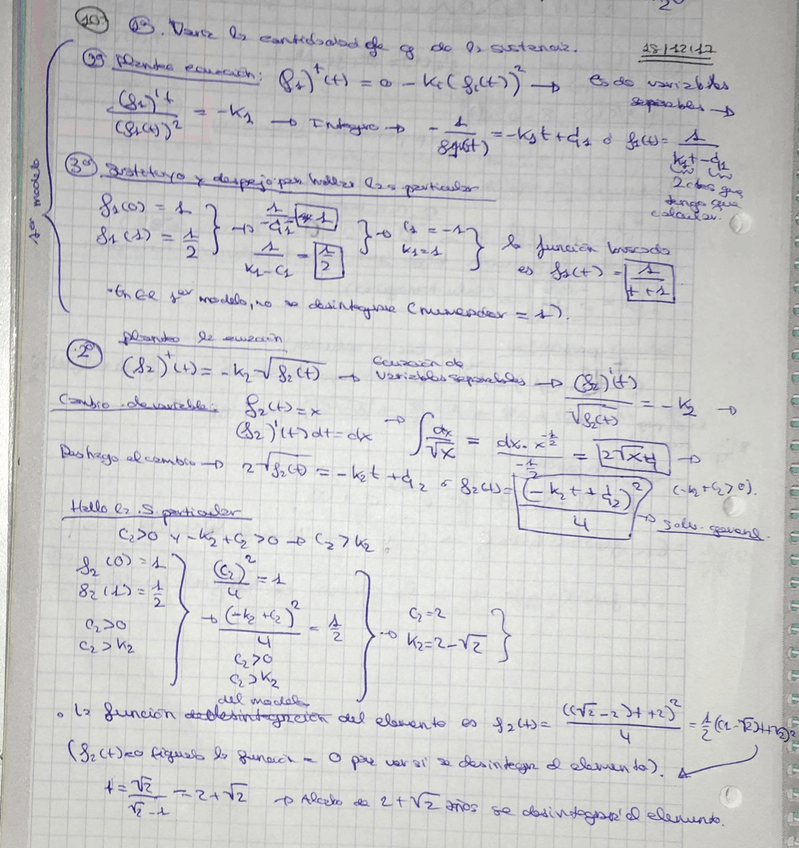 10. 1º. Varía la cantidad de q de la sustancia. 18/12/17
1er modelo
2º Planteo ecuación: (f₁)'(t) = 0 - K₁(f₁(t))² → Es de variables separables →
(f₁)'t / (f₁(t))² = -K₁ → Integro → -1/f₁(t) = -K₁t + C₁ ó f₁(t) = 1/(K₁t - C₁)
2 ctes que tengo que calcular.
3º Sustituyo y despejo para hallar la s. particular
f₁(0) = 1 } → 1/-C₁ = 1 } → C₁ = -1 } la función buscada
f₁(1) = 1/2 } 1/(K₁-C₁) = 1/2 } K₁ = 1 } es f₁(t) = 1/(t+1)
• En el 1er modelo, no se desintegra (numerador = 1).
2º planteo la ecuación
(f₂)'(t) = -K₂√f₂(t) → Ecuación de variables separables → (f₂)'(t)/√f₂(t) = -K₂ →
Cambio de variable: f₂(t) = x
(f₂)'(t)dt = dx → ∫dx/√x = dx · x^(-1/2) / -1/2 = 2√x+C →
Deshago el cambio → 2√f₂(t) = -K₂t + C₂ ó f₂(t) = (-K₂t + C₂)²/4 (-K₂+C₂>0).
→ Soluc. general.
Hallo la S. particular
C₂>0 y -K₂+C₂>0 → C₂>K₂.
f₂(0) = 1 } (C₂)²/4 = 1 }
f₂(1) = 1/2 } → (-K₂+C₂)²/4 = 1/2 } → C₂=2 }
C₂>0 } C₂>0 } K₂=2-√2 }
C₂>K₂ } C₂>K₂ }
del modelo
• la función desintegración del elemento es f₂(t) = ((√2-2)t+2)²/4 = 1/2((1-√2)t+√2)²
(f₂(t)=0 igualo la función = 0 para ver si se desintegra el elemento).
t = √2/(√2-1) = 2+√2 → Al cabo de 2+√2 años se desintegra el elemento.